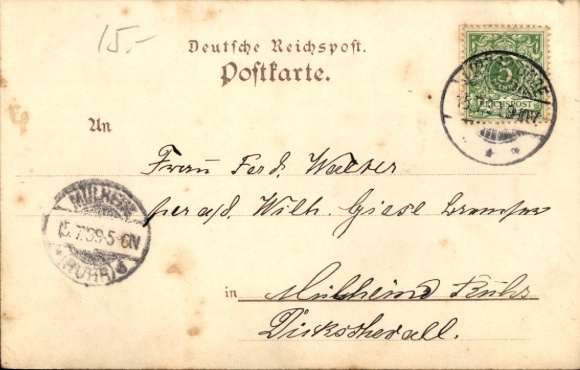 15.-
Deutsche Reichspost.
Postkarte.
5
REICHSPOST
An
Frau Ferd. Walter
per ad. Wilh. Giese
MÜLHEIM
15.7.99.5-6N
(RUHR)
in Mülheim Ruhr